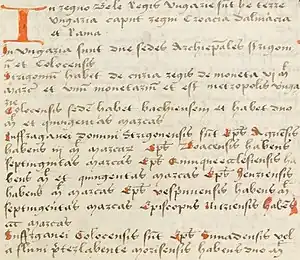 In regno Bele Regis Ungarie sūt he terre
Ungaria caput regni Croacia Dalmacia
et Rama
In Ungaria sunt due sedes Archiepales strigon
n̄ et Colocensis
Strigoniū habet de curia regis de moneta vi m̄
marc et viii monetariū et est metropolis Ungar
Colocensis sedes habet bachiensem et habet duo
m̄ et quingentas marcas
Suffraganei Domini Strigonensis sūt Ep̄s Agriēsis
habens iii m̄ marcas Ep̄s Voacensis habens
septingintas marcas Ep̄s Quinqueecclesensis ha
bens m̄ et quingentas marcas Ep̄s Jeuriensis
habens m̄ marcas Ep̄s vespriniensis habens m̄
septingentas marcas Episcopus Nitriensis habēs
marcas
Suffraganei Colocensis sūt Ep̄s Sunadensis vel
a fluvi habens duo m̄